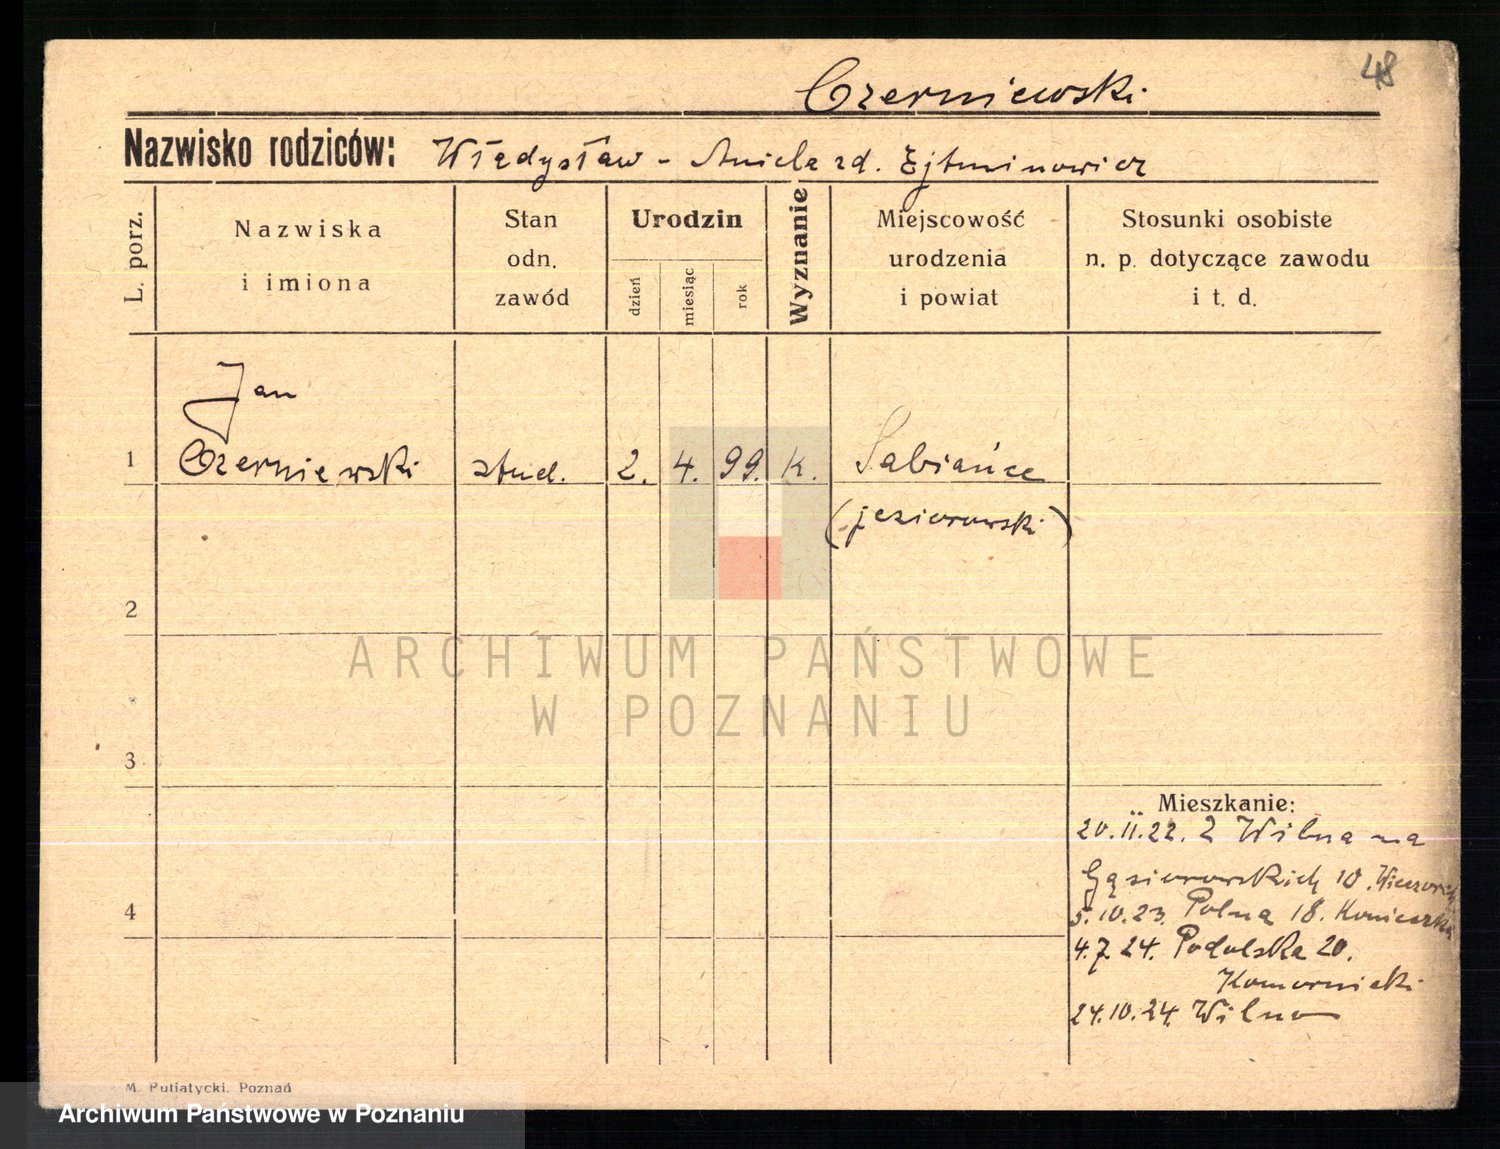 48
Czerniewski
Nazwisko rodziców: Władysław - Aniela zd. Ejtminowicz
L. porz.
Nazwiska
i imiona
Stan
odn.
zawód
Urodzin
dzień
miesiąc
rok
Wyznanie
Miejscowość
urodzenia
i powiat
Stosunki osobiste
n. p. dotyczące zawodu
i t. d.
Jan
1 Czerniewski stud. 2. 4. 99. K. Sabiańce
(jeziorowski)
2
3
4
Mieszkanie:
20.II.22. z Wilna na
Gąsiorowskich 10.
5.10.23. Polna 18. Konieczka
4.7.24. Podolska 20.
Komornicki
24.10.24. Wilno
M. Putiatycki. Poznań
ARCHIWUM PAŃSTWOWE
W POZNANIU
Archiwum Państwowe w Poznaniu